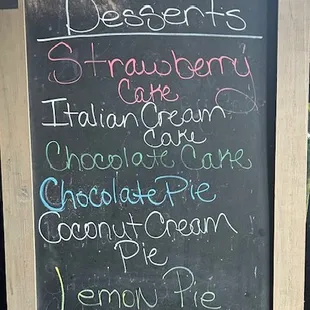 Desserts
Strawberry
Cake
Italian Cream
Cake
Chocolate Cake
Chocolate Pie
Coconut Cream
Pie
Lemon Pie